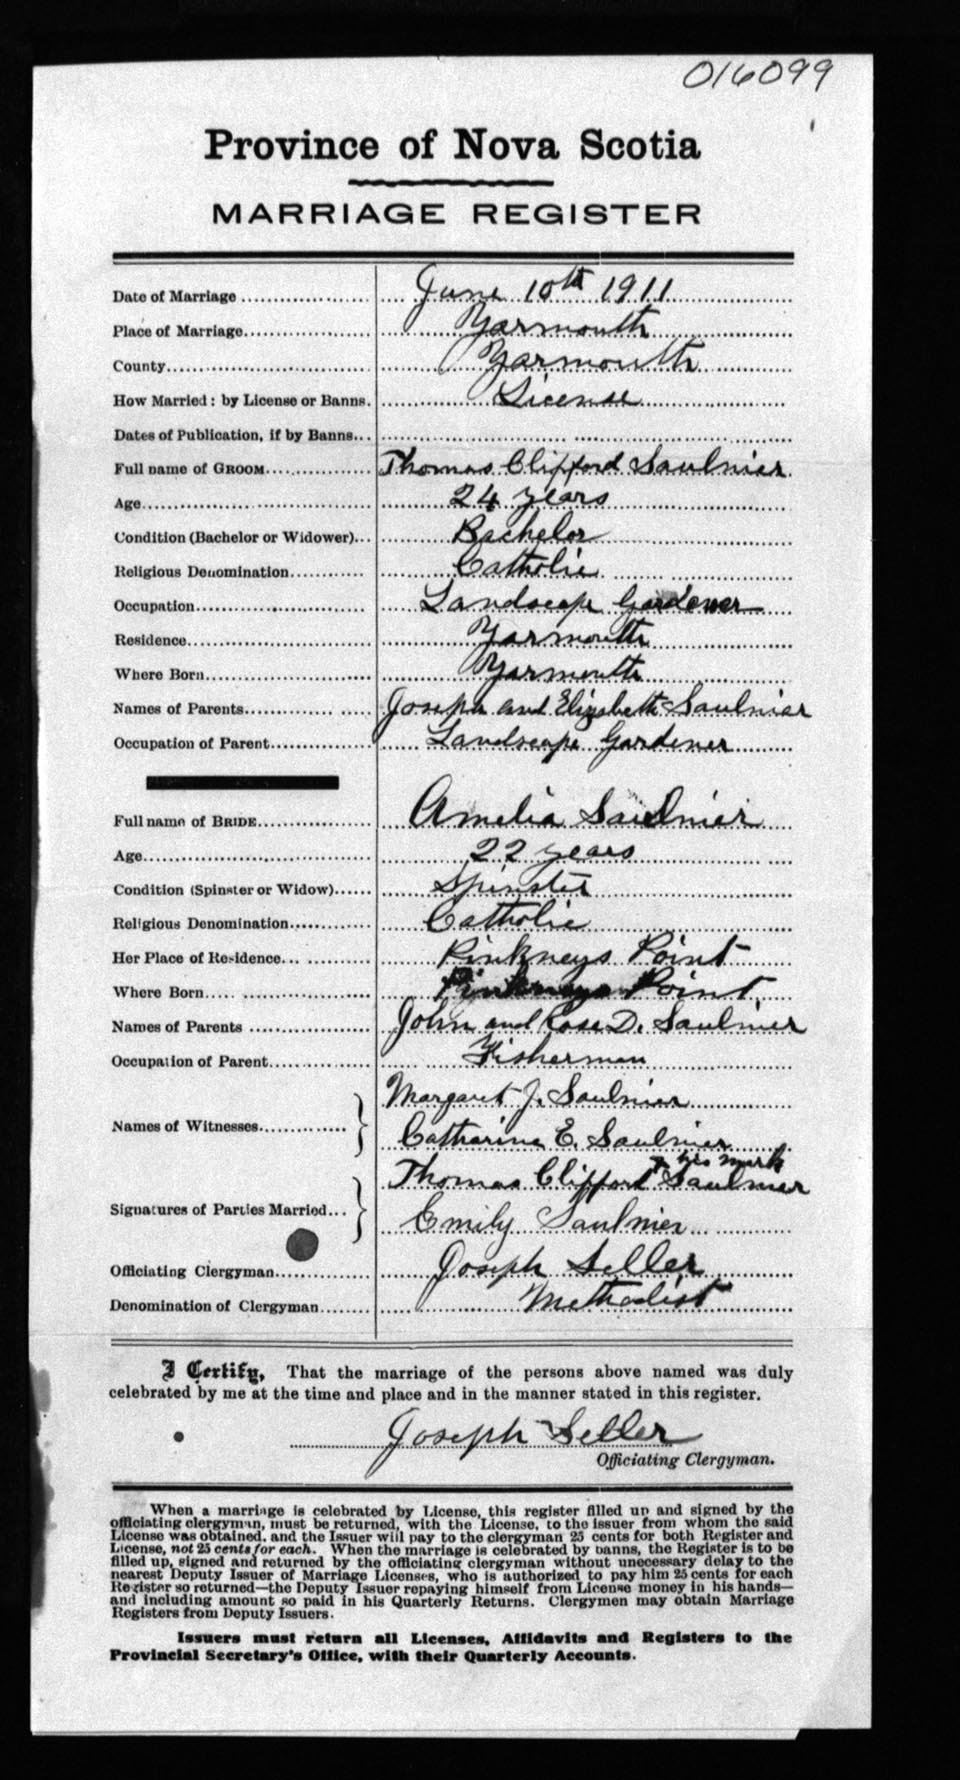 016099
Province of Nova Scotia
MARRIAGE REGISTER
Date of Marriage June 10th 1911
Place of Marriage Yarmouth
County Yarmouth
How Married: by License or Banns. License
Dates of Publication, if by Banns
Full name of GROOM Thomas Clifford Saulnier
Age 24 years
Condition (Bachelor or Widower) Bachelor
Religious Denomination Catholic
Occupation Landscape Gardener
Residence Yarmouth
Where Born Yarmouth
Names of Parents Joseph and Elizabeth Saulnier
Occupation of Parent Landscape Gardener
Full name of BRIDE Amelia Saulnier
Age 22 years
Condition (Spinster or Widow) Spinster
Religious Denomination Catholic
Her Place of Residence Pinkneys Point
Where Born Pinkneys Point
Names of Parents John and Rose D. Saulnier
Occupation of Parent Fisherman
Names of Witnesses Margaret J. Saulnier
Catharine E. Saulnier
x his mark
Signatures of Parties Married Thomas Clifford Saulnier
Emily Saulnier
Officiating Clergyman Joseph Seller
Denomination of Clergyman Methodist
I Certify, That the marriage of the persons above named was duly
celebrated by me at the time and place and in the manner stated in this register.
Joseph Seller
Officiating Clergyman.
When a marriage is celebrated by License, this register filled up and signed by the
officiating clergyman, must be returned, with the License, to the issuer from whom the said
License was obtained, and the Issuer will pay to the clergyman 25 cents for both Register and
License, not 25 cents for each. When the marriage is celebrated by banns, the Register is to be
filled up, signed and returned by the officiating clergyman without unecessary delay to the
nearest Deputy Issuer of Marriage Licenses, who is authorized to pay him 25 cents for each
Register so returned—the Deputy Issuer repaying himself from License money in his hands—
and including amount so paid in his Quarterly Returns. Clergymen may obtain Marriage
Registers from Deputy Issuers.
Issuers must return all Licenses, Affidavits and Registers to the
Provincial Secretary's Office, with their Quarterly Accounts.